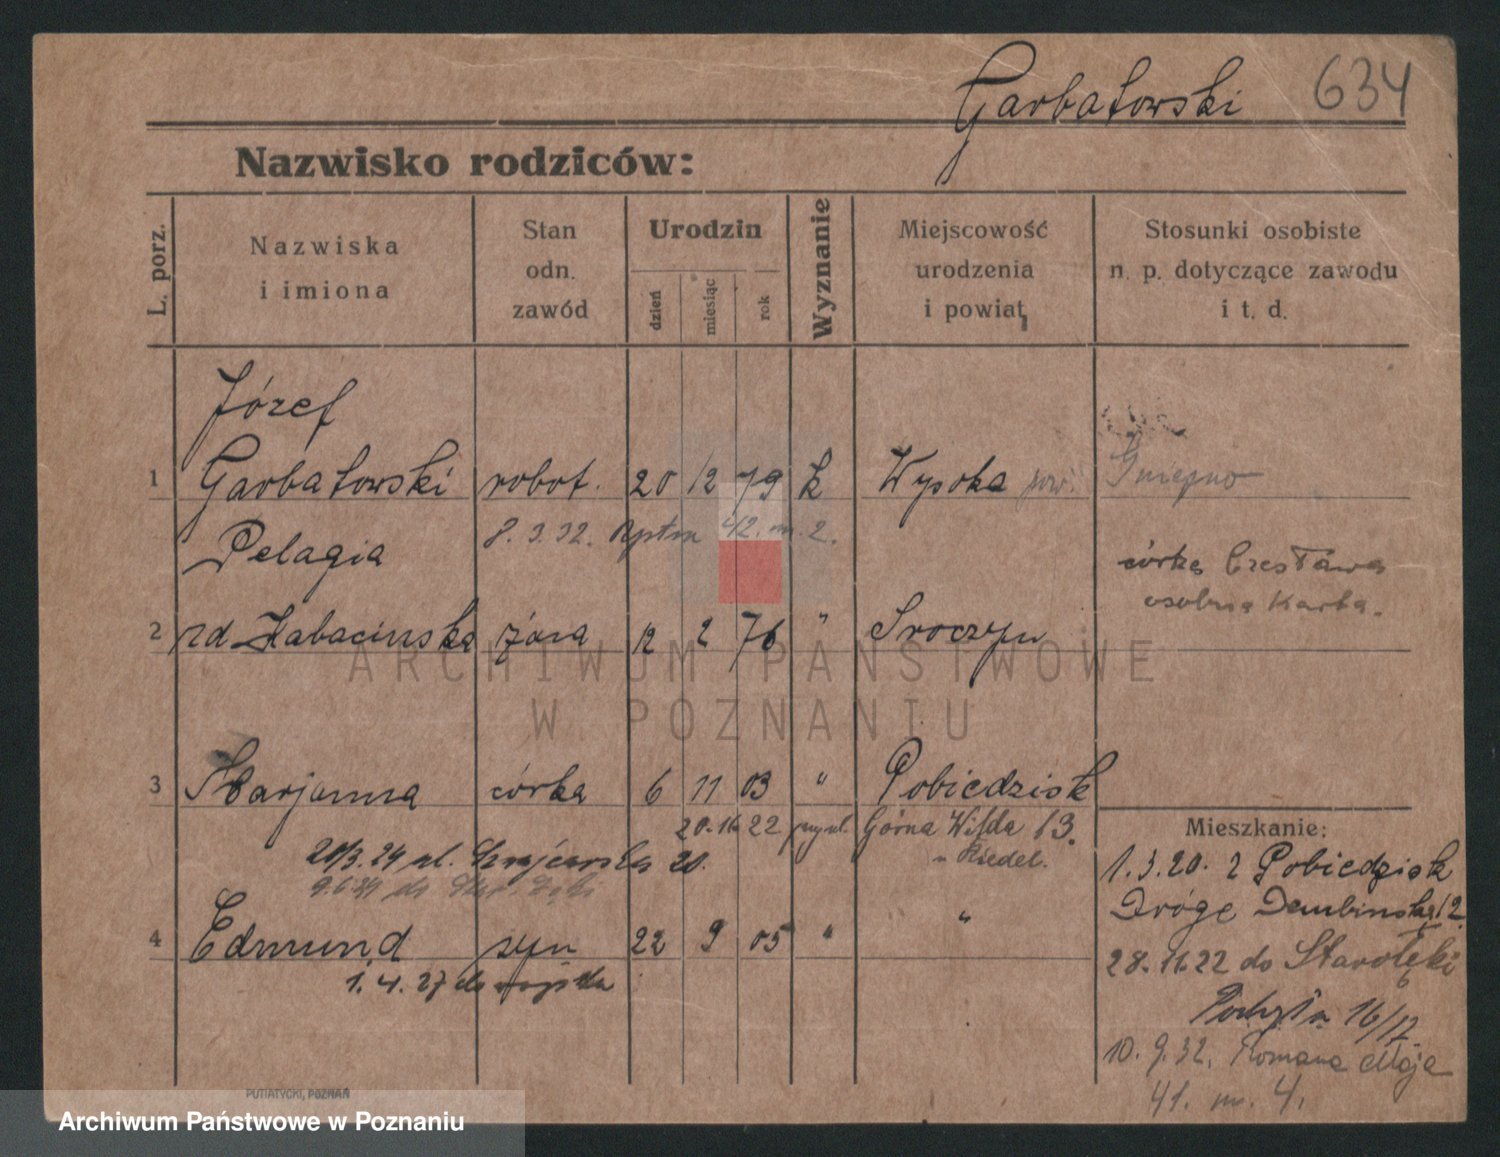 Garbatowski 634
Nazwisko rodziców:
L. porz.
Nazwiska
i imiona
Stan
odn.
zawód
Urodzin
dzień
miesiąc
rok
Wyznanie
Miejscowość
urodzenia
i powiat
Stosunki osobiste
n. p. dotyczące zawodu
i t. d.
Józef
1 Garbatowski robot. 20 12 79 k Wysoka pow. Gniezno
8. 3. 32. 42. m. 2.
Pelagia
córka Czesława
osobna karta.
2 żona 12 2 76 " Sroczyn
3 Marjanna córka 6 11 03 " Pobiedzisk
22 Górna Wilda 13.
Riedel.
20/3. 24 ul. 20.
4 Edmund syn 22 9 05 " "
1. 4. 27 do wojska
Mieszkanie:
1. 3. 20. z Pobiedzisk
Dróga Dembińska 12.
28. 11. 22 do Starołęki
16/17
10. 9. 32. Romana Maja
41. m. 4.
PUTIATYCKI, POZNAŃ
ARCHIWUM PAŃSTWOWE
W POZNANIU
Archiwum Państwowe w Poznaniu